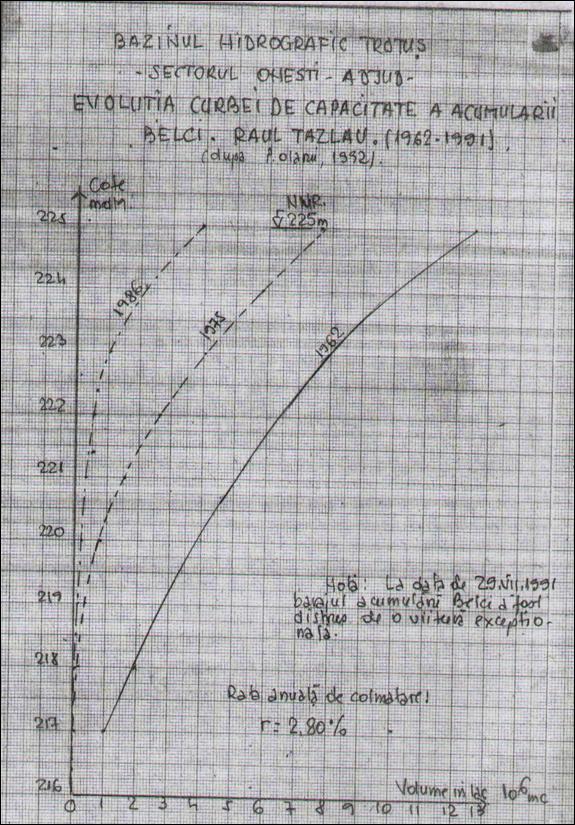 BAZINUL HIDROGRAFIC TROTUȘ
- SECTORUL ONESTI - ADJUD -
EVOLUTIA CURBEI DE CAPACITATE A ACUMULARII
BELCI. RAUL TAZLAU. (1962-1991).
(după P. Olariu, 1992).
Cote
mdm.
N.N.R.
225m
225
224
223
222
221
220
219
218
217
216
1986
1975
1962
Notă: La data de 29.VII.1991
barajul acumulării Belci a fost
distrus de o viitură excepțio-
nală.
Rata anuală de colmatare:
r = 2,80%
Volume in lac 10⁶ mc
0 1 2 3 4 5 6 7 8 9 10 11 12 13